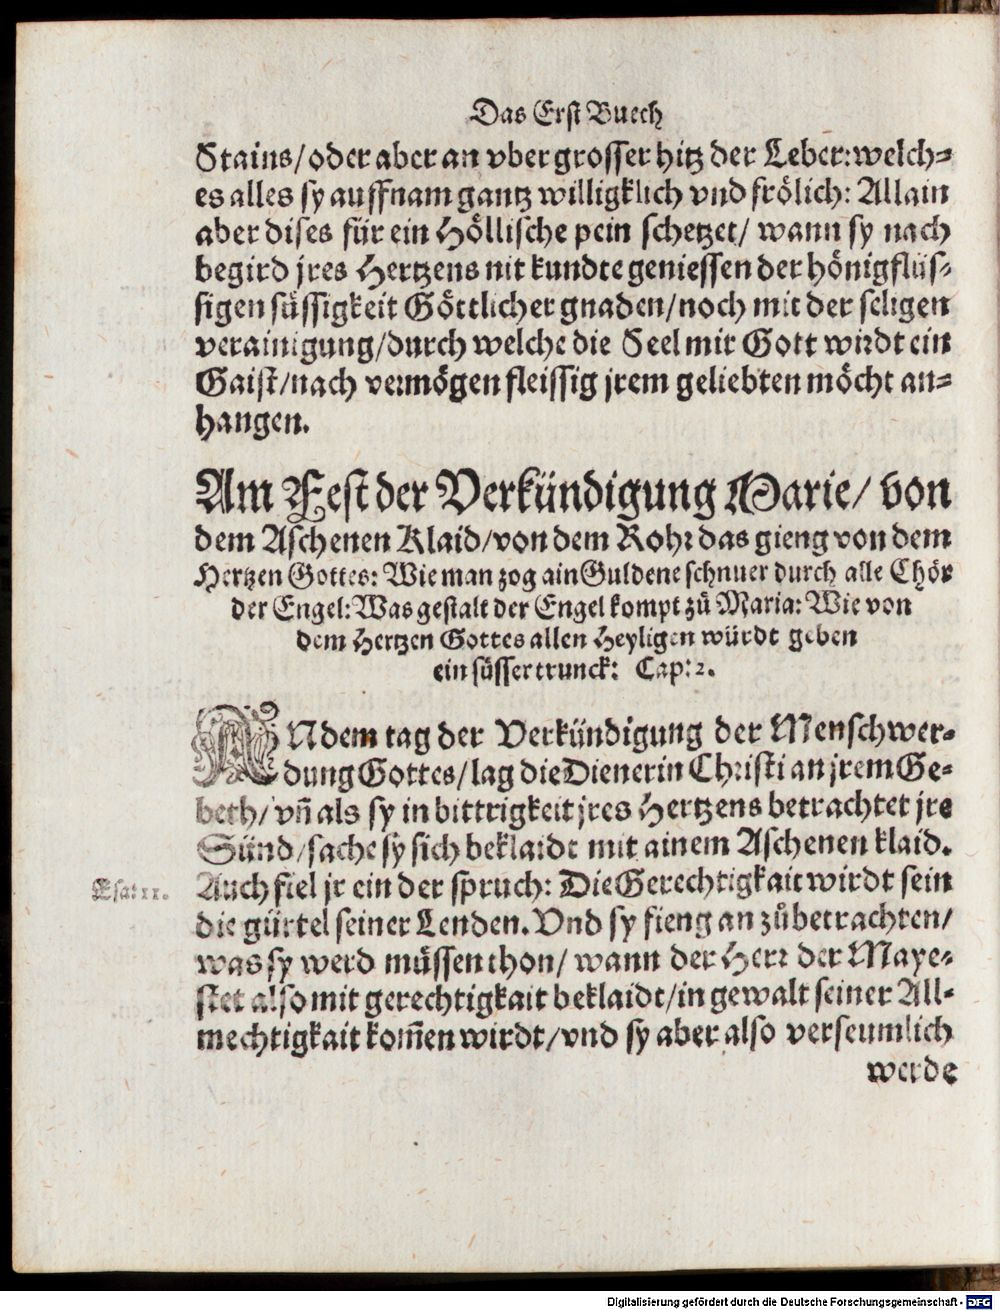 Das Erst Buech
Stains/ oder aber an vber grosser hitz der Leber: welch⸗
es alles sy auffnam gantz willigklich vnd frölich: Allain
aber dises für ein Höllische pein schetzet/ wann sy nach
begird jres Hertzens nit kundte geniessen der hönigflüs⸗
sigen süssigkeit Göttlicher gnaden/ noch mit der seligen
verainigung/ durch welche die Seel mit Gott wirdt ein
Gaist/ nach vermögen fleissig jrem geliebten möcht an⸗
hangen.
Am Fest der Verkündigung Marie/ von
dem Aschenen Klaid/ von dem Rohr das gieng von dem
Hertzen Gottes: Wie man zog ain Guldene schnuer durch alle Chör
der Engel: Was gestalt der Engel kompt zů Maria: Wie von
dem Hertzen Gottes allen Heyligen würdt geben
ein süsser trunck: Cap: 2.
ANdem tag der Verkündigung der Menschwer⸗
dung Gottes/ lag die Dienerin Christi an jrem Ge⸗
beth/ vñ als sy in bittrigkeit jres Hertzens betrachtet jre
Sünd/ sache sy sich beklaidt mit ainem Aschenen klaid.
Esa: 11. Auch fiel jr ein der spruch: Die Gerechtigkait wirdt sein
die gürtel seiner Lenden. Vnd sy fieng an zů betrachten/
was sy werd müssen thon/ wann der Herr der Maye⸗
stet also mit gerechtigkait beklaidt/ in gewalt seiner All⸗
mechtigkait kom̃en wirdt/ vnd sy aber also verseumlich
werde
Digitalisierung gefördert durch die Deutsche Forschungsgemeinschaft - DFG